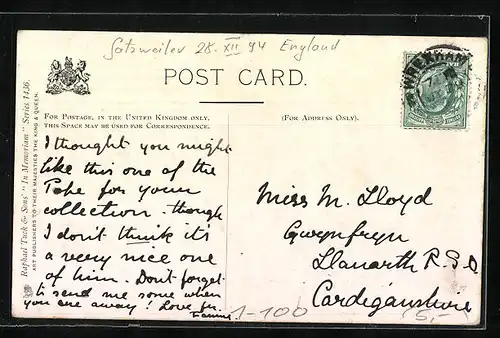 28. XII 94 England
WREXHAM
POST CARD.
FOR POSTAGE, IN THE UNITED KINGDOM ONLY,
THIS SPACE MAY BE USED FOR CORRESPONDENCE.
(FOR ADDRESS ONLY).
Raphael Tuck & Sons' "In Memoriam" Series 1436.
ART PUBLISHERS TO THEIR MAJESTIES THE KING & QUEEN.
I thought you might
like this one of the
Pope for your
collection. though
I don't think it's
a very nice one
of him. Don't forget
to send me some when
you are away! Love fr.
Fannie.
Miss M. Lloyd
Gwynfryn
Llanarth R.S.O.
Cardiganshire
1-100
5,-